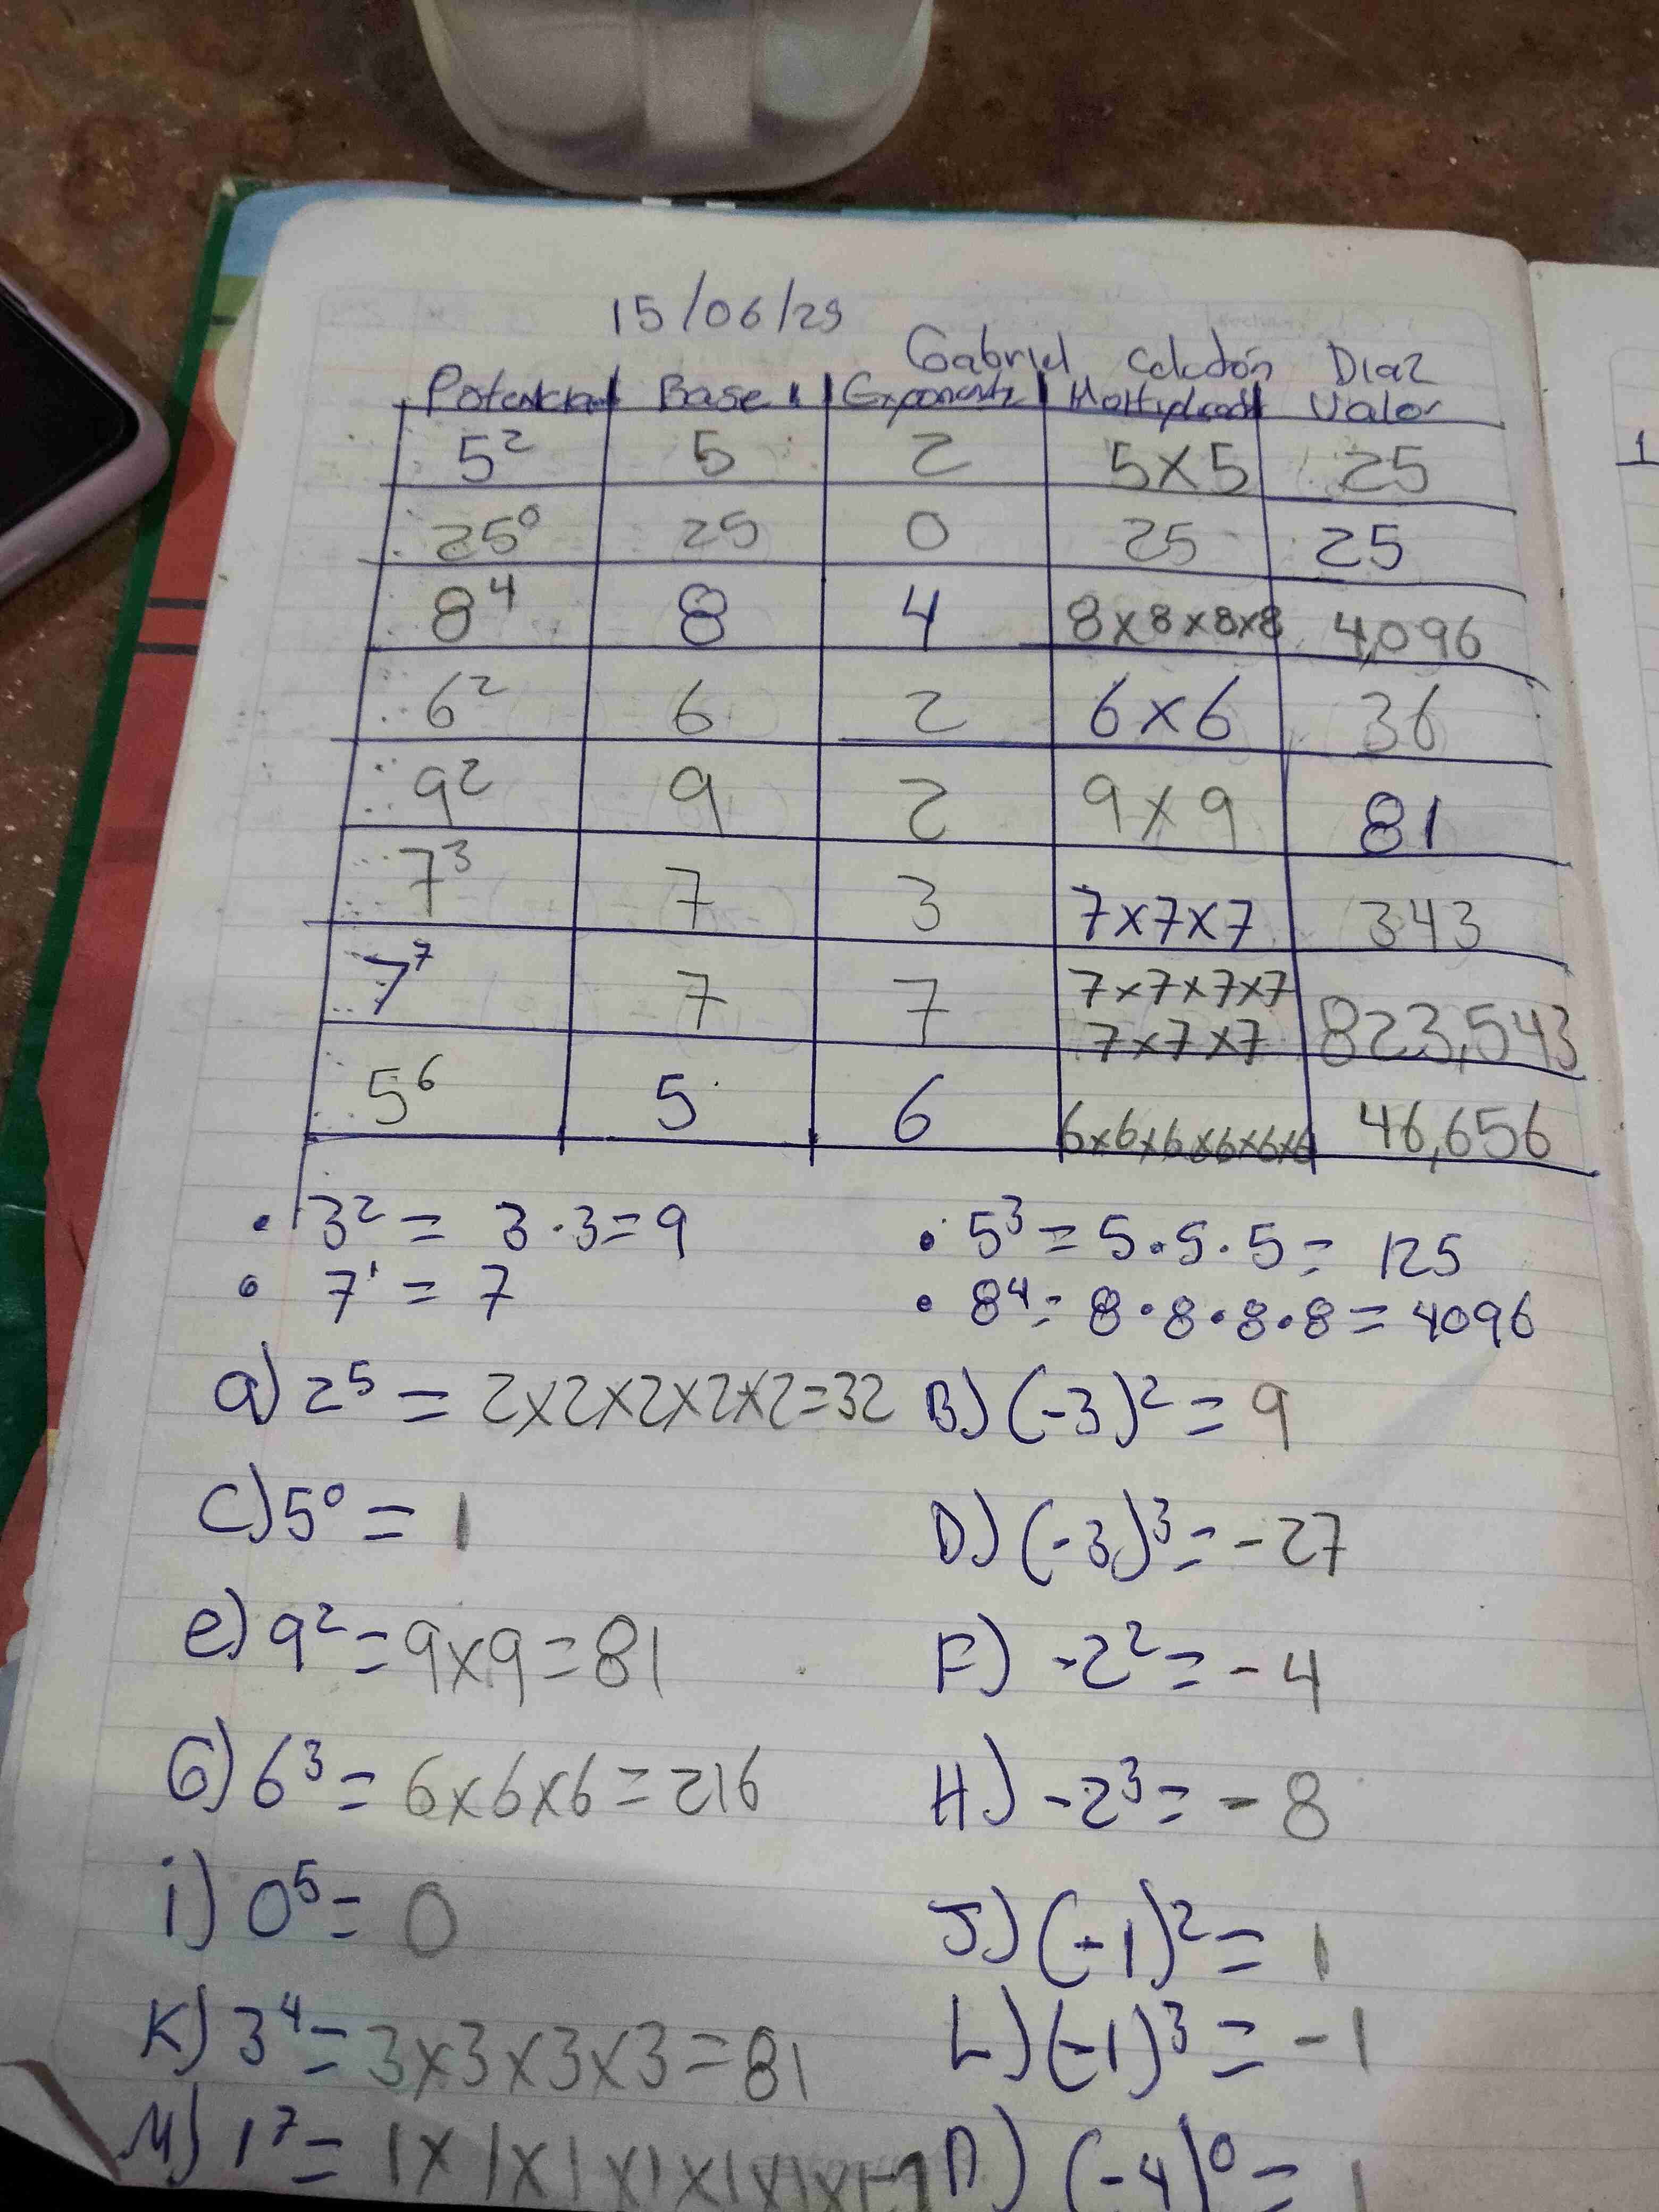 15/06/29
Gabriel Celedón Diaz
Potencia Base Exponente Multiplicación Valor
5² 5 2 5x5 25
25⁰ 25 0 25 25
8⁴ 8 4 8x8x8x8 4,096
6² 6 2 6x6 36
9² 9 2 9x9 81
7³ 7 3 7x7x7 343
7⁷ 7 7 7x7x7x7 7x7x7 823,543
5⁶ 5 6 6x6x6x6x6x6 46,656
• 3² = 3·3=9 • 5³ = 5·5·5= 125
• 7¹ = 7 • 8⁴= 8·8·8·8=4096
a) 2⁵ = 2x2x2x2x2=32 B) (-3)² = 9
C) 5⁰ = 1 D) (-3)³ = -27
e) 9² = 9x9=81 F) -2² = -4
G) 6³ = 6x6x6=216 H) -2³ = -8
i) 0⁵ = 0 J) (-1)² = 1
K) 3⁴ = 3x3x3x3=81 L) (-1)³ = -1
M) 1⁷ = 1x1x1x1x1x1x1=1 n) (-4)⁰ = 1
1